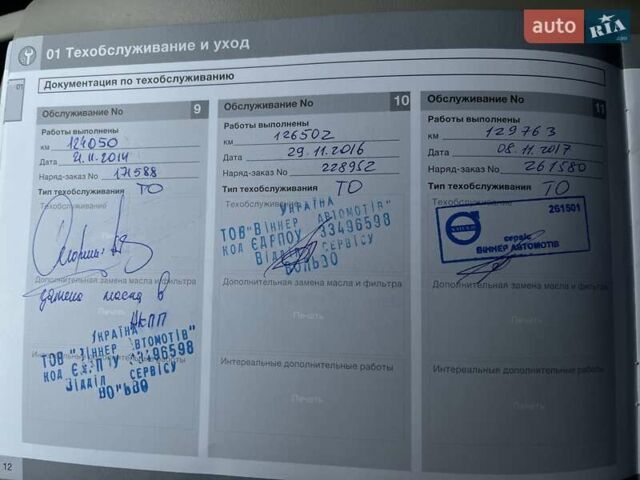 auto RIA .com
01 Техобслуживание и уход
01
Документация по техобслуживанию
Обслуживание No 9
Работы выполнены
км 124050
Дата 21.11.2014
Наряд-заказ No 171588
Тип техобслуживания ТО
Техобслуживание
Дополнительная замена масла и фильтра
замена масла в АКПП
Печать
Интервальные дополнительные работы
УКРАЇНА
ТОВ "ВІННЕР АВТОМОТІВ"
КОД ЄДРПОУ 33496598
ВІДДІЛ СЕРВІСУ
ВОЛЬВО
Обслуживание No 10
Работы выполнены
км 126502
Дата 29.11.2016
Наряд-заказ No 228952
Тип техобслуживания ТО
Техобслуживание
УКРАЇНА
ТОВ "ВІННЕР АВТОМОТІВ"
КОД ЄДРПОУ 33496598
ВІДДІЛ СЕРВІСУ
ВОЛЬВО
Дополнительная замена масла и фильтра
Печать
Интервальные дополнительные работы
Печать
Обслуживание No 11
Работы выполнены
км 129763
Дата 08.11.2017
Наряд-заказ No 261580
Тип техобслуживания ТО
Техобслуживание
261501
VOLVO
сервіс
ВІННЕР АВТОМОТІВ
Дополнительная замена масла и фильтра
Печать
Интервальные дополнительные работы
Печать
12